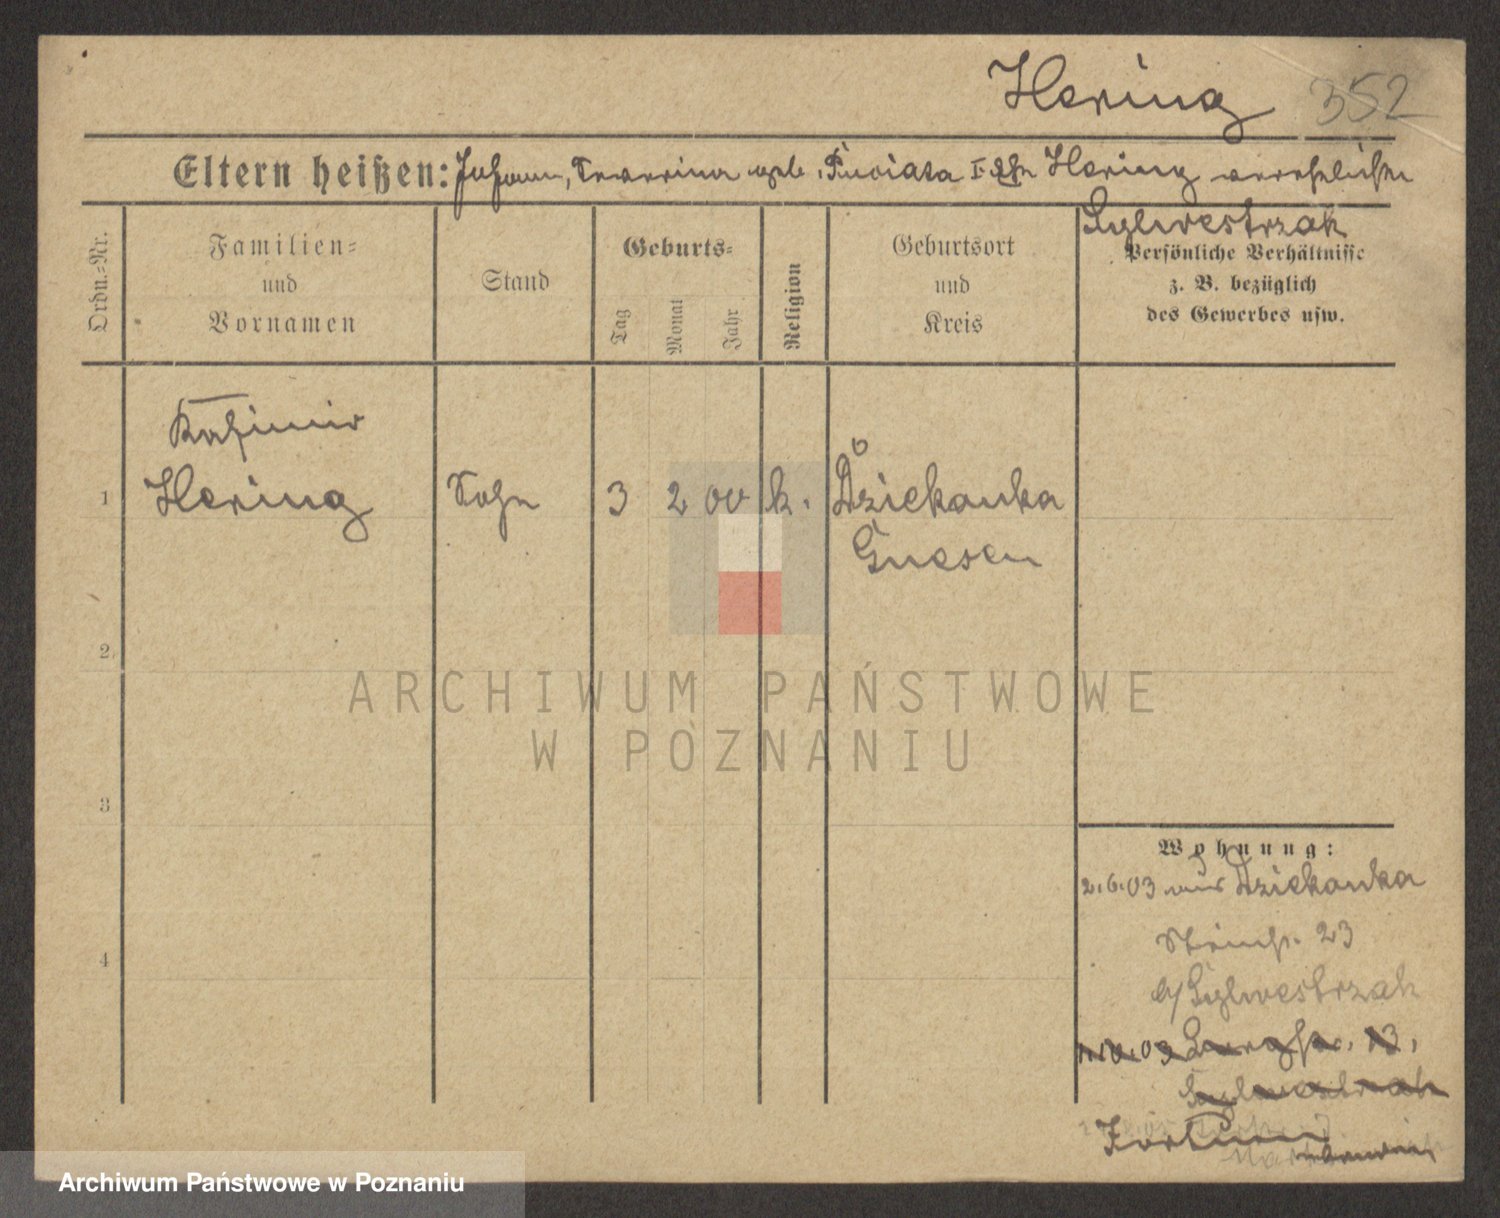 Hering 352
Eltern heißen: Johann, Severina geb. I. Ehe Hering verehelichte
Sylwestrzak
Ordn.-Nr.
Familien-
und
Vornamen
Stand
Geburts-
Tag
Monat
Jahr
Religion
Geburtsort
und
Kreis
Persönliche Verhältnisse
z. B. bezüglich
des Gewerbes usw.
Kasimir
1 Hering Sohn 3 2 00 k. Dziekanka
Gnesen
2
3
4
Wohnung:
2.6.03 aus Dziekanka
23
b/Sylwestrzak
13,
Sylwestrzak
ARCHIWUM PAŃSTWOWE
W POZNANIU
Archiwum Państwowe w Poznaniu